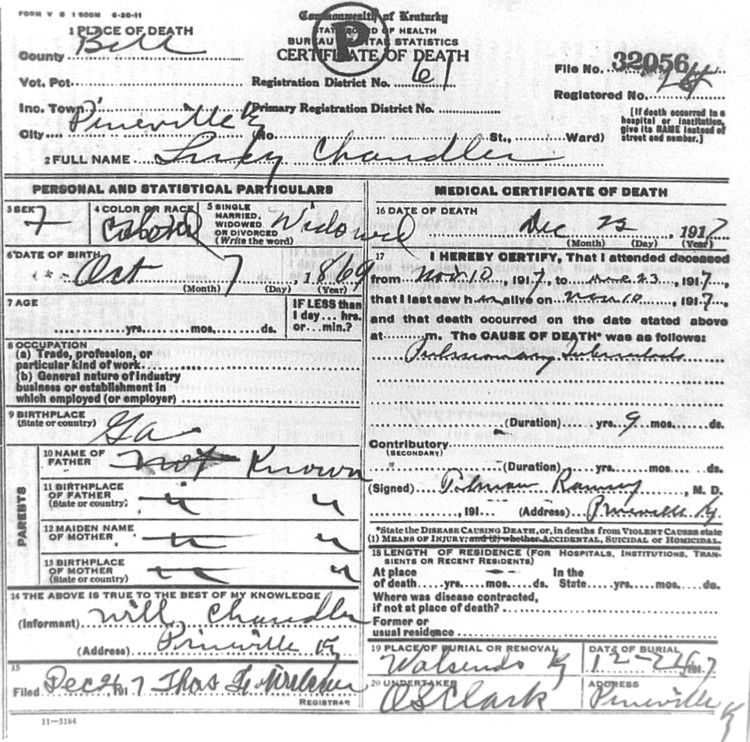 FORM V S 1 500M 6-20-11
Commonwealth of Kentucky
STATE BOARD OF HEALTH
BUREAU VITAL STATISTICS
CERTIFICATE OF DEATH
P
1 PLACE OF DEATH
County Bell
Vot. Pct.
Inc. Town
City Pineville Ky
Registration District No. 61
Primary Registration District No.
(No. St., Ward)
File No. 32056
Registered No.
[If death occurred in a
hospital or institution,
give its NAME instead of
street and number.]
2 FULL NAME Lucy Chandler
PERSONAL AND STATISTICAL PARTICULARS
3 SEX F
4 COLOR OR RACE Colored
5 SINGLE
MARRIED,
WIDOWED
OR DIVORCED
(Write the word) Widowed
6 DATE OF BIRTH
Oct 7, 1869
(Month) (Day) (Year)
7 AGE
yrs. mos. ds.
IF LESS than
1 day... hrs.
or... min.?
8 OCCUPATION
(a) Trade, profession, or
particular kind of work
(b) General nature of industry
business or establishment in
which employed (or employer)
9 BIRTHPLACE
(State or country) Ga
PARENTS
10 NAME OF
FATHER not Known
11 BIRTHPLACE
OF FATHER
(State or country) " "
12 MAIDEN NAME
OF MOTHER " "
13 BIRTHPLACE
OF MOTHER
(State or country) " "
14 THE ABOVE IS TRUE TO THE BEST OF MY KNOWLEDGE
(Informant) Will Chandler
(Address) Pineville Ky
15
Filed Dec 26, 1917 Thos
REGISTRAR
11-3184
MEDICAL CERTIFICATE OF DEATH
16 DATE OF DEATH
Dec 23 1917
(Month) (Day) (Year)
17 I HEREBY CERTIFY, That I attended deceased
from Nov 10, 1917, to Dec 23, 1917,
that I last saw h er alive on Nov 10, 1917,
and that death occurred on the date stated above
at m. The CAUSE OF DEATH* was as follows:
Pulmonary Tuberculosis
(Duration) yrs. 9 mos. ds.
Contributory
(SECONDARY)
(Duration) yrs. mos. ds.
(Signed) Tilman Ramsey, M. D.
, 191 (Address) Pineville Ky
*State the DISEASE CAUSING DEATH, or, in deaths from VIOLENT CAUSES state
(1) MEANS OF INJURY; and (2) whether ACCIDENTAL, SUICIDAL or HOMICIDAL.
18 LENGTH OF RESIDENCE (FOR HOSPITALS, INSTITUTIONS, TRANSIENTS OR RECENT RESIDENTS)
At place In the
of death yrs. mos. ds. State yrs. mos. ds.
Where was disease contracted,
if not at place of death?
Former or
usual residence
19 PLACE OF BURIAL OR REMOVAL
Ky
DATE OF BURIAL
12-24 1917
20 UNDERTAKER
O S Clark
ADDRESS
Pineville Ky